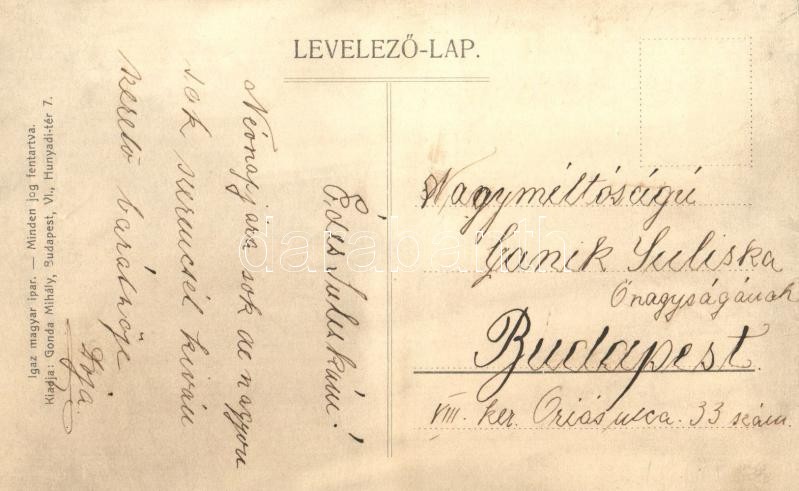 LEVELEZŐ-LAP.
Édes Juliskám!
Névnapjára sok de nagyon
sok szerencsét kíván
szerető barátnője
Nagyméltóságú
Ganik Juliska
Őnagyságának
Budapest.
VIII. ker. Óriás utca. 33 szám.
Igaz magyar ipar. — Minden jog fentartva.
Kiadja: Gonda Mihály, Budapest, VI., Hunyadi-tér 7.
darabanth